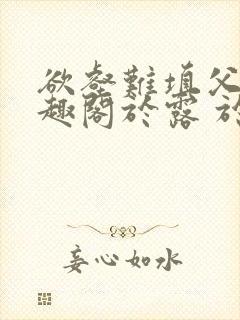 欲壑難填父
趣閣於露 於
妄心如水